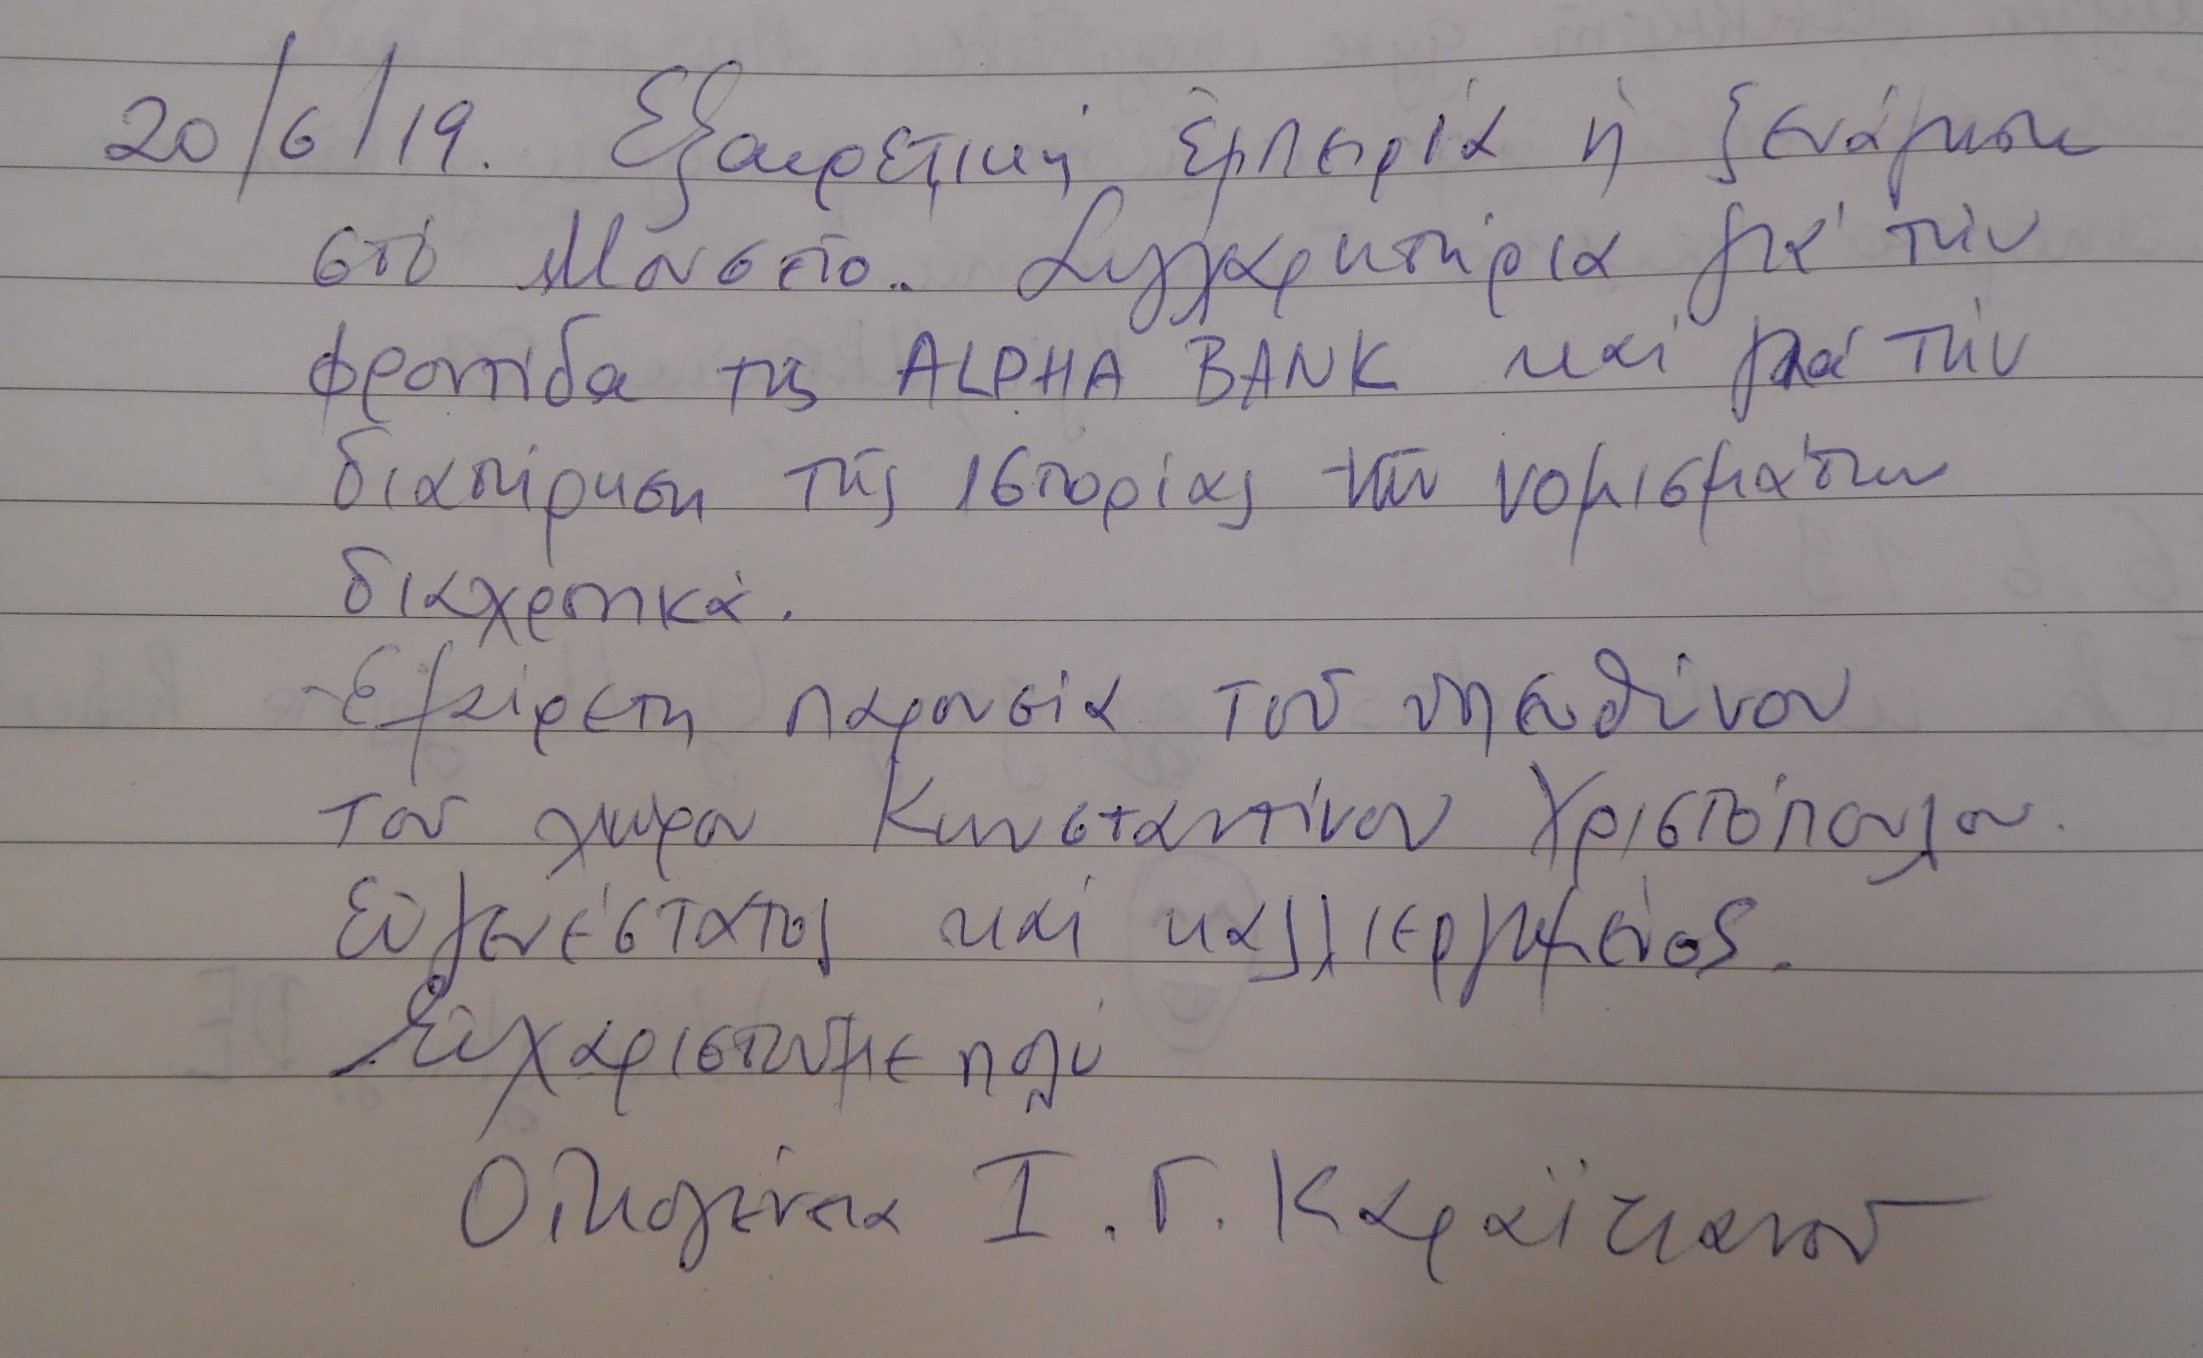 20/6/19. Εξαιρετική ἐμπειρία ἡ ξενάγηση
στό Μουσεῖο. Συγχαρητήρια γιά τήν
φροντίδα της ALPHA BANK καί γιά τήν
διατήρηση τῆς ιστορίας τῶν νομισμάτων
διαχρονικά.
Εξαίρετη παρουσία τοῦ ὑπευθύνου
τοῦ χώρου Κωνσταντίνου Χριστόπουλου.
Εὐγενέστατος καί καλλιεργημένος.
Εὐχαριστοῦμε πολύ
Οικογένεια Ι. Γ.